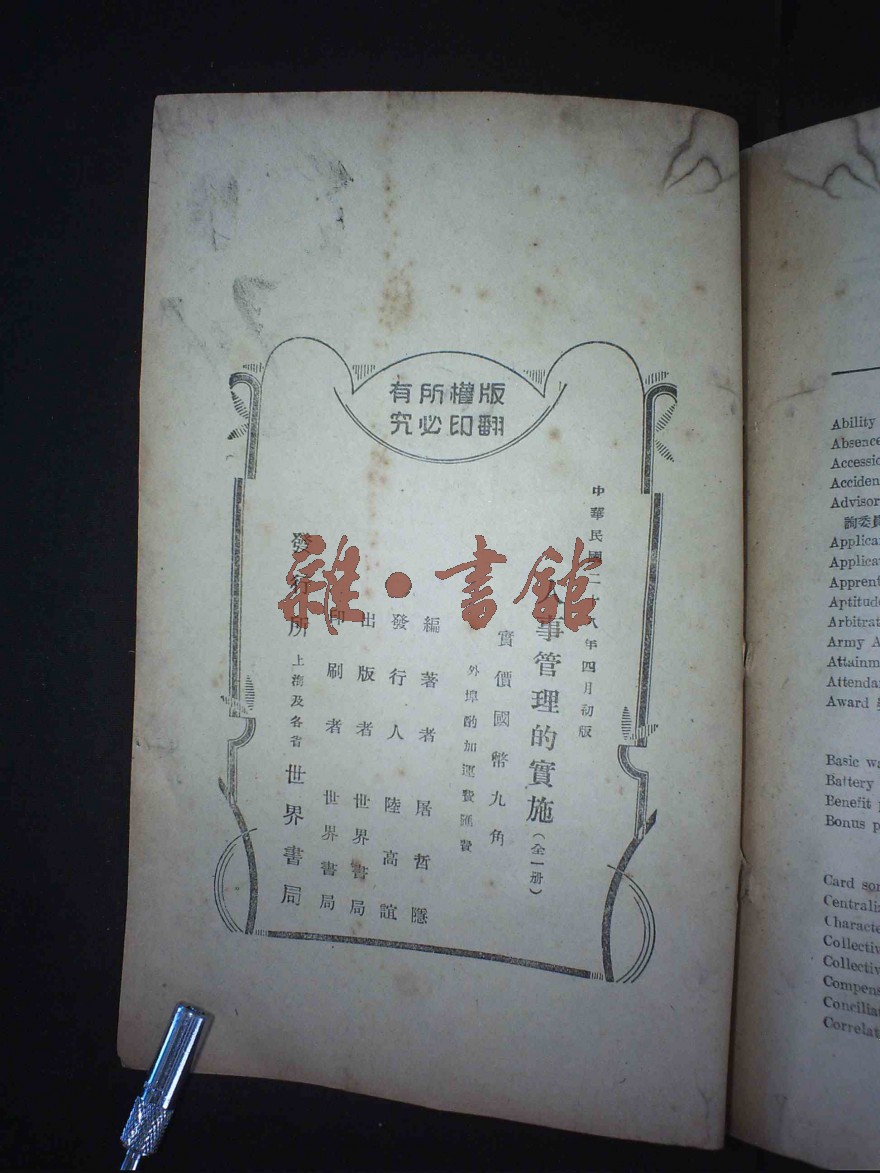 版權所有
翻印必究
中華民國二十八年四月初版
人事管理的實施(全一册)
實價國幣九角
外埠酌加運費匯費
編著者 屠哲隱
發行人 陸高誼
出版者 世界書局
印刷者 世界書局
發行所 上海及各省 世界書局
雜·書館
Ability
Absence
Accessio
Acciden
Advisor
詢委員
Applica
Applica
Apprent
Aptitude
Arbitrat
Army A
Attainm
Attenda
Award
Basic wa
Battery
Benefit
Bonus p
Card sor
Centraliz
Characte
Collectiv
Collectiv
Compens
Concilia
Correlat